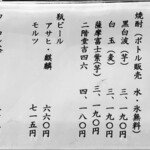 焼酎(ボトル販売 水・氷無料)
黒白波(芋) 三、一九〇円
白玉(麦) 三、一九〇円
薩摩富士紫(芋) 三、一九〇円
二階堂吉四六 四、一八〇円
瓶ビール
アサヒ・麒麟 六六〇円
モルツ 七一五円